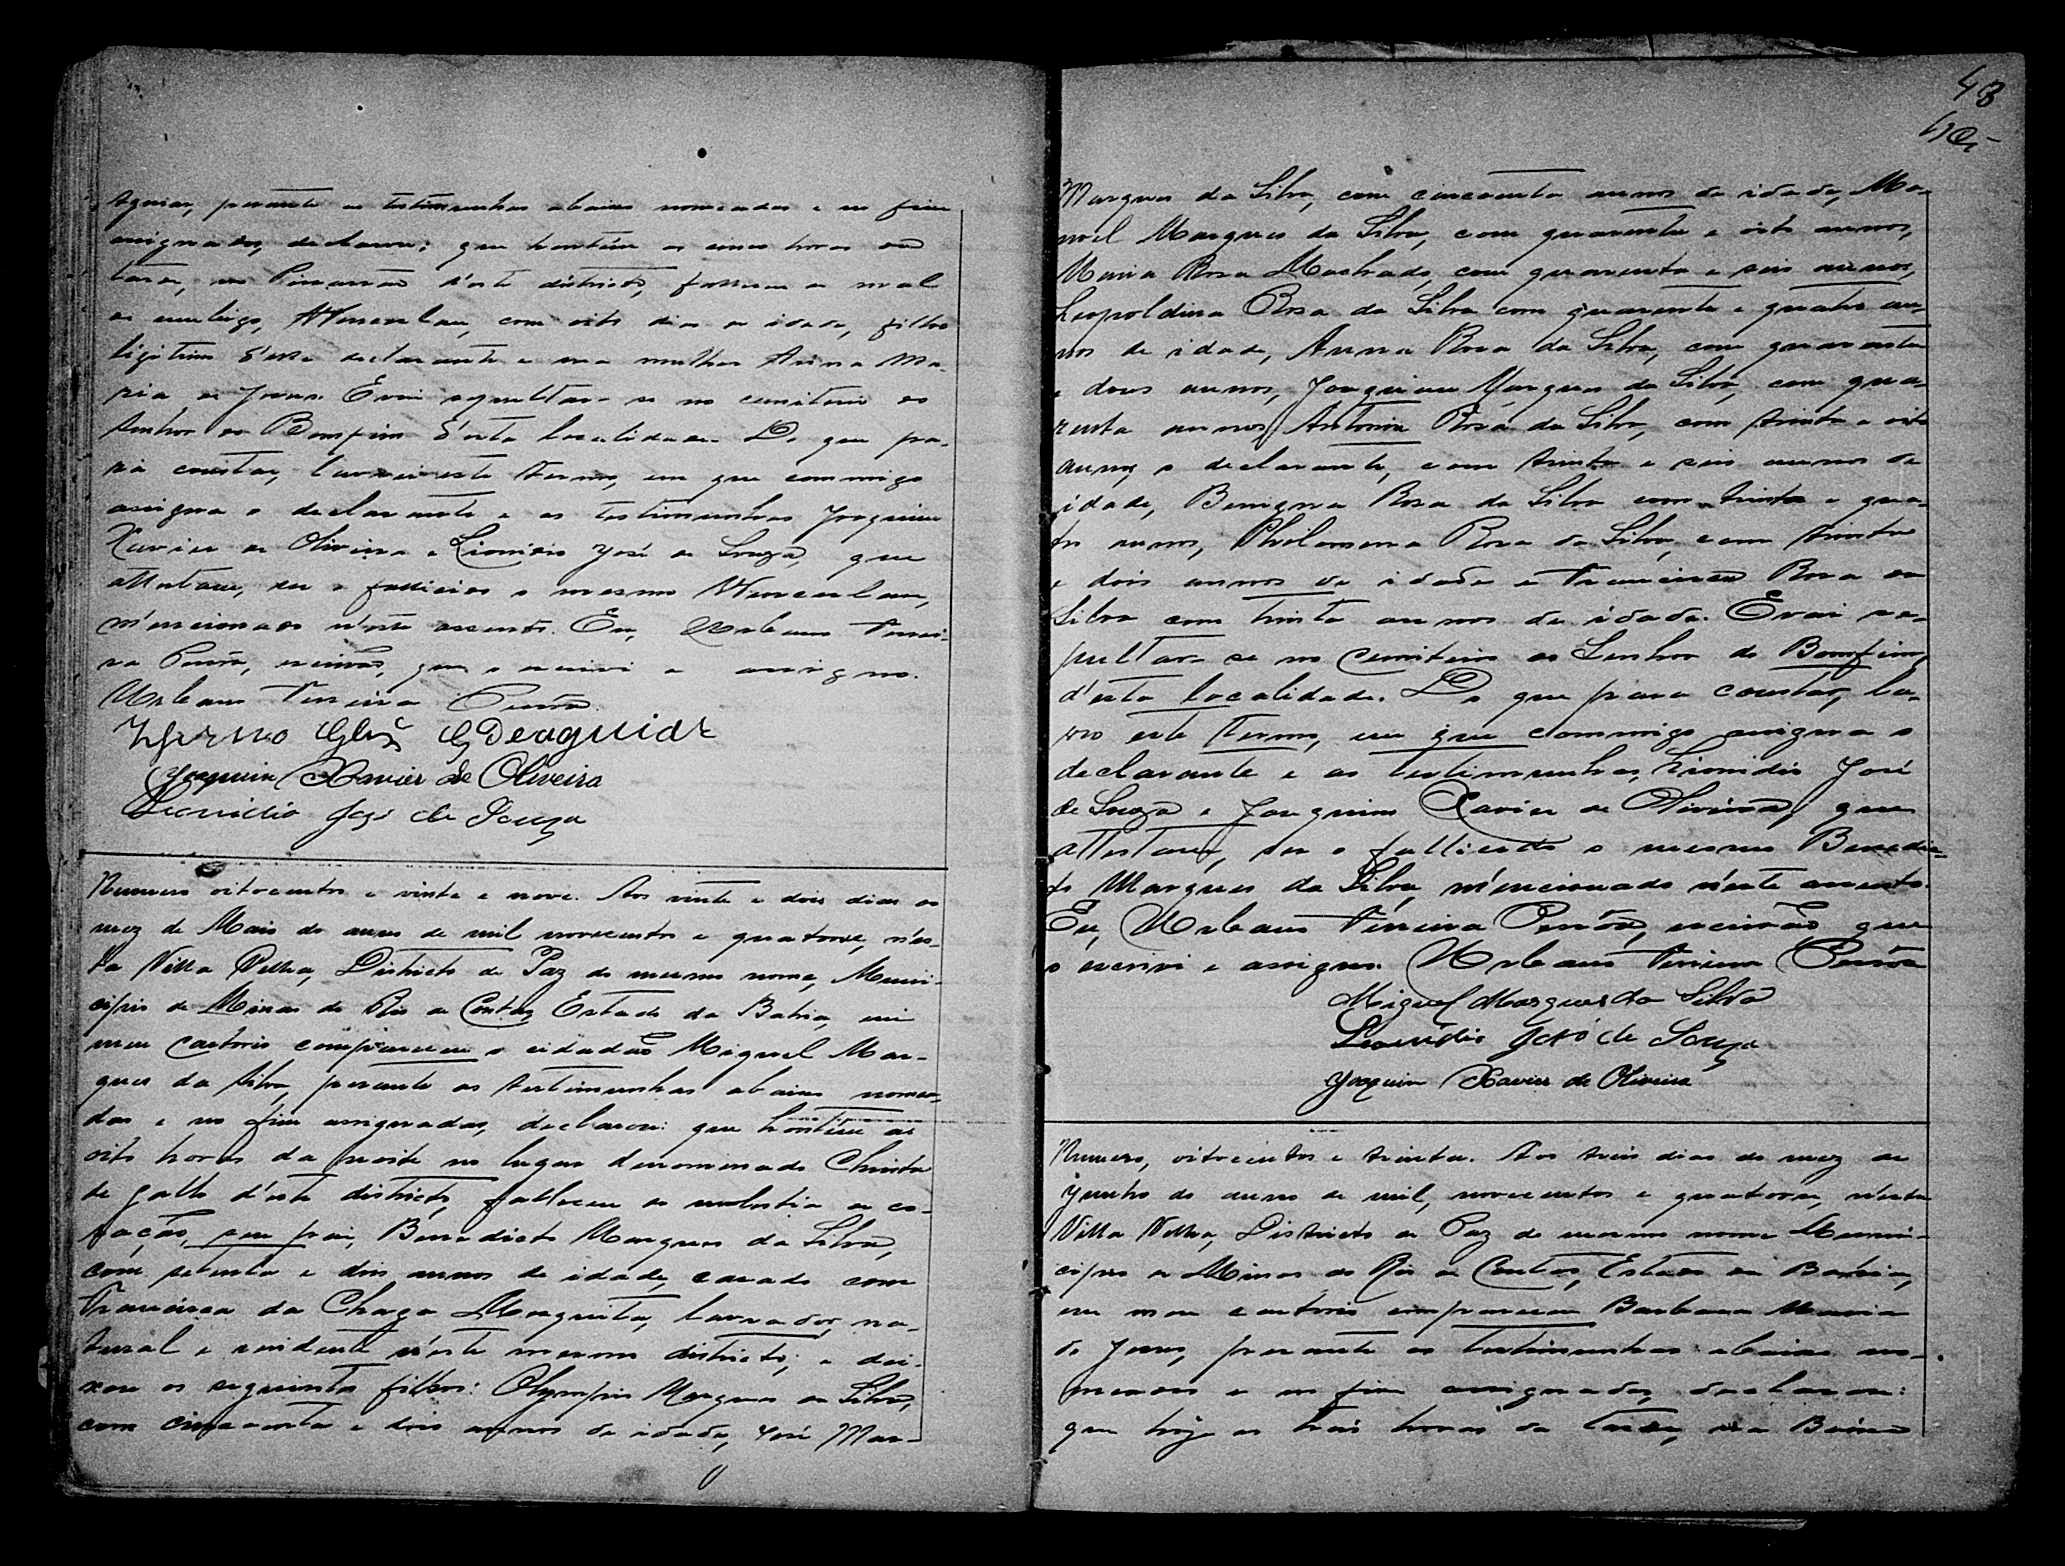 Aguiar, perante as testimunhas abaixo nomeadas e no fim
assignadas, declarou: que hontem as cinco horas da
tarde, no d'este districto, falleceu de mal
de umbigo, Wenceslau, com oito dias de idade, filho
ligitimo d'elle declarante e sua mulher Anna Ma-
ria de Jesus. E vai sepultar-se no cemiterio do
Senhor do Bomfim d'esta localidade. Do que pa-
ra constar, lavrei este termo, em que commigo
assigna o declarante e as testimunhas Joaquim
Xavier de Oliveira e Lionidio José de Souza, que
attestam, ser o fallicido o mesmo Wenceslau,
mencionado n'este assento. Eu, Urbano Ferrei-
ra escrivão, que o escrivi e assigno.
Urbano Ferreira
José Deaguiar
Joaquim Xavier de Oliveira
Leonidio José de Souza
Numero oitocentos e vinte e nove. Aos vinte e dois dias do
mez de Maio do anno de mil novecentos e quatorze, n'es-
ta Villa Velha, Districto de Paz do mesmo nome, Muni-
cipio de Minas do Rio de Contas, Estado da Bahia, em
meu cartorio compareceu o cidadão Miguel Mar-
ques da Silva, perante as testimunhas abaixo nomea-
das e no fim assignadas, declarou: que hontem as
oito horas da noite no lugar denominado Christa
de gallo d'este districto, falleceu de molestia de co-
ração, seu pai, Benedicto Marques da Silva,
com setenta e dois annos de idade, casado com
Francisca da Chaga Mesquita, lavrador, na-
tural e residente n'este mesmo districto; e dei-
xou os seguintes filhos: Olympio Marques da Silva,
com cincoenta e dois annos de idade, José Mar-
48
Marques da Silva, com cincoenta annos de idade, Ma-
noel Marques da Silva, com quarenta e oito annos,
Maria Rosa Machado, com quarenta e seis annos,
Leopoldina Rosa da Silva com quarenta e quatro an-
nos de idade, Anna Rosa da Silva, com quarenta
e dous annos, Joaquim Marques da Silva, com qua-
renta annos, Antonia Rosa da Silva, com trinta e oito
annos, o declarante, com trinta e seis annos de
idade, Benigna Rosa da Silva com trinta e qua-
tro annos, Philomena Rosa da Silva, com trinta
e dois annos de idade e Francisca Rosa da
Silva com trinta annos de idade. E vai se-
pultar-se no Cemiterio do Senhor do Bomfim,
d'esta localidade. Do que para constar, la-
vro este termo, em que commigo assigna o
declarante e as testimunhas, Lionidio José
de Souza e Joaquim Xavier de Oliveira, que
attestam, ser o fallicido o mesmo Benedic-
to Marques da Silva, mencionado n'este assento.
Eu, Urbano Ferreira escrivão que
o escrivi e assigno. Urbano Ferreira
Miguel Marques da Silva
Leonidio José de Souza
Joaquim Xavier de Oliveira
Numero, oitocentos e trinta. Aos treis dias do mez de
Junho do anno de mil, novecentos e quatorze, n'esta
Villa Velha, Districto de Paz do mesmo nome Muni-
cipio de Minas do Rio de Contas, Estado da Bahia,
em meu cartorio compareceu Barbara Maria
de Jesus, perante as testimunhas abaixo no-
meadas e no fim assignadas, declarou:
que hoje as treis horas da tarde, na